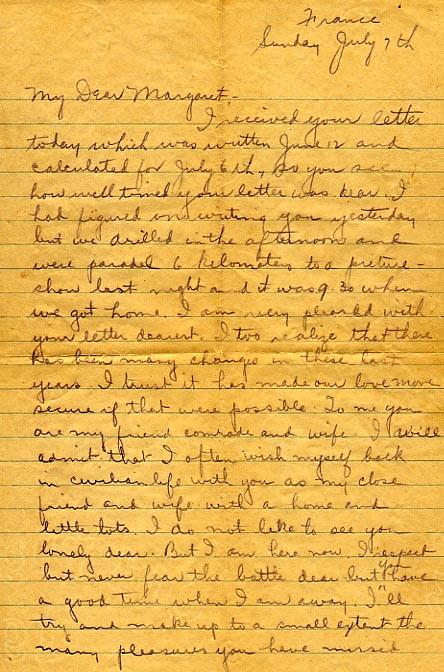 France
Sunday July 7th
My Dear Margaret,-
I received your letter
today which was written June 12 and
calculated for July 6th, so you see
how well timed your letter was dear. I
had figured on writing you yesterday
but we drilled in the afternoon and
were paraded 6 kilometers to a picture-
show last night and it was 9.30 when
we got home. I am very pleased with
your letter dearest. I too realize that there
has been many changes in these last
years. I trust it has made our love more
secure if that were possible. To me you
are my friend comrade and wife. I will
admit that I often wish myself back
in civilian life with you as my close
friend and wife with a home and
little tots. I do not like to see you
lonely dear. But I am here now. I respect
but never fear the battle dear but you have
a good time when I am away. I'll
try and make up to a small extent the
many pleasures you have missed